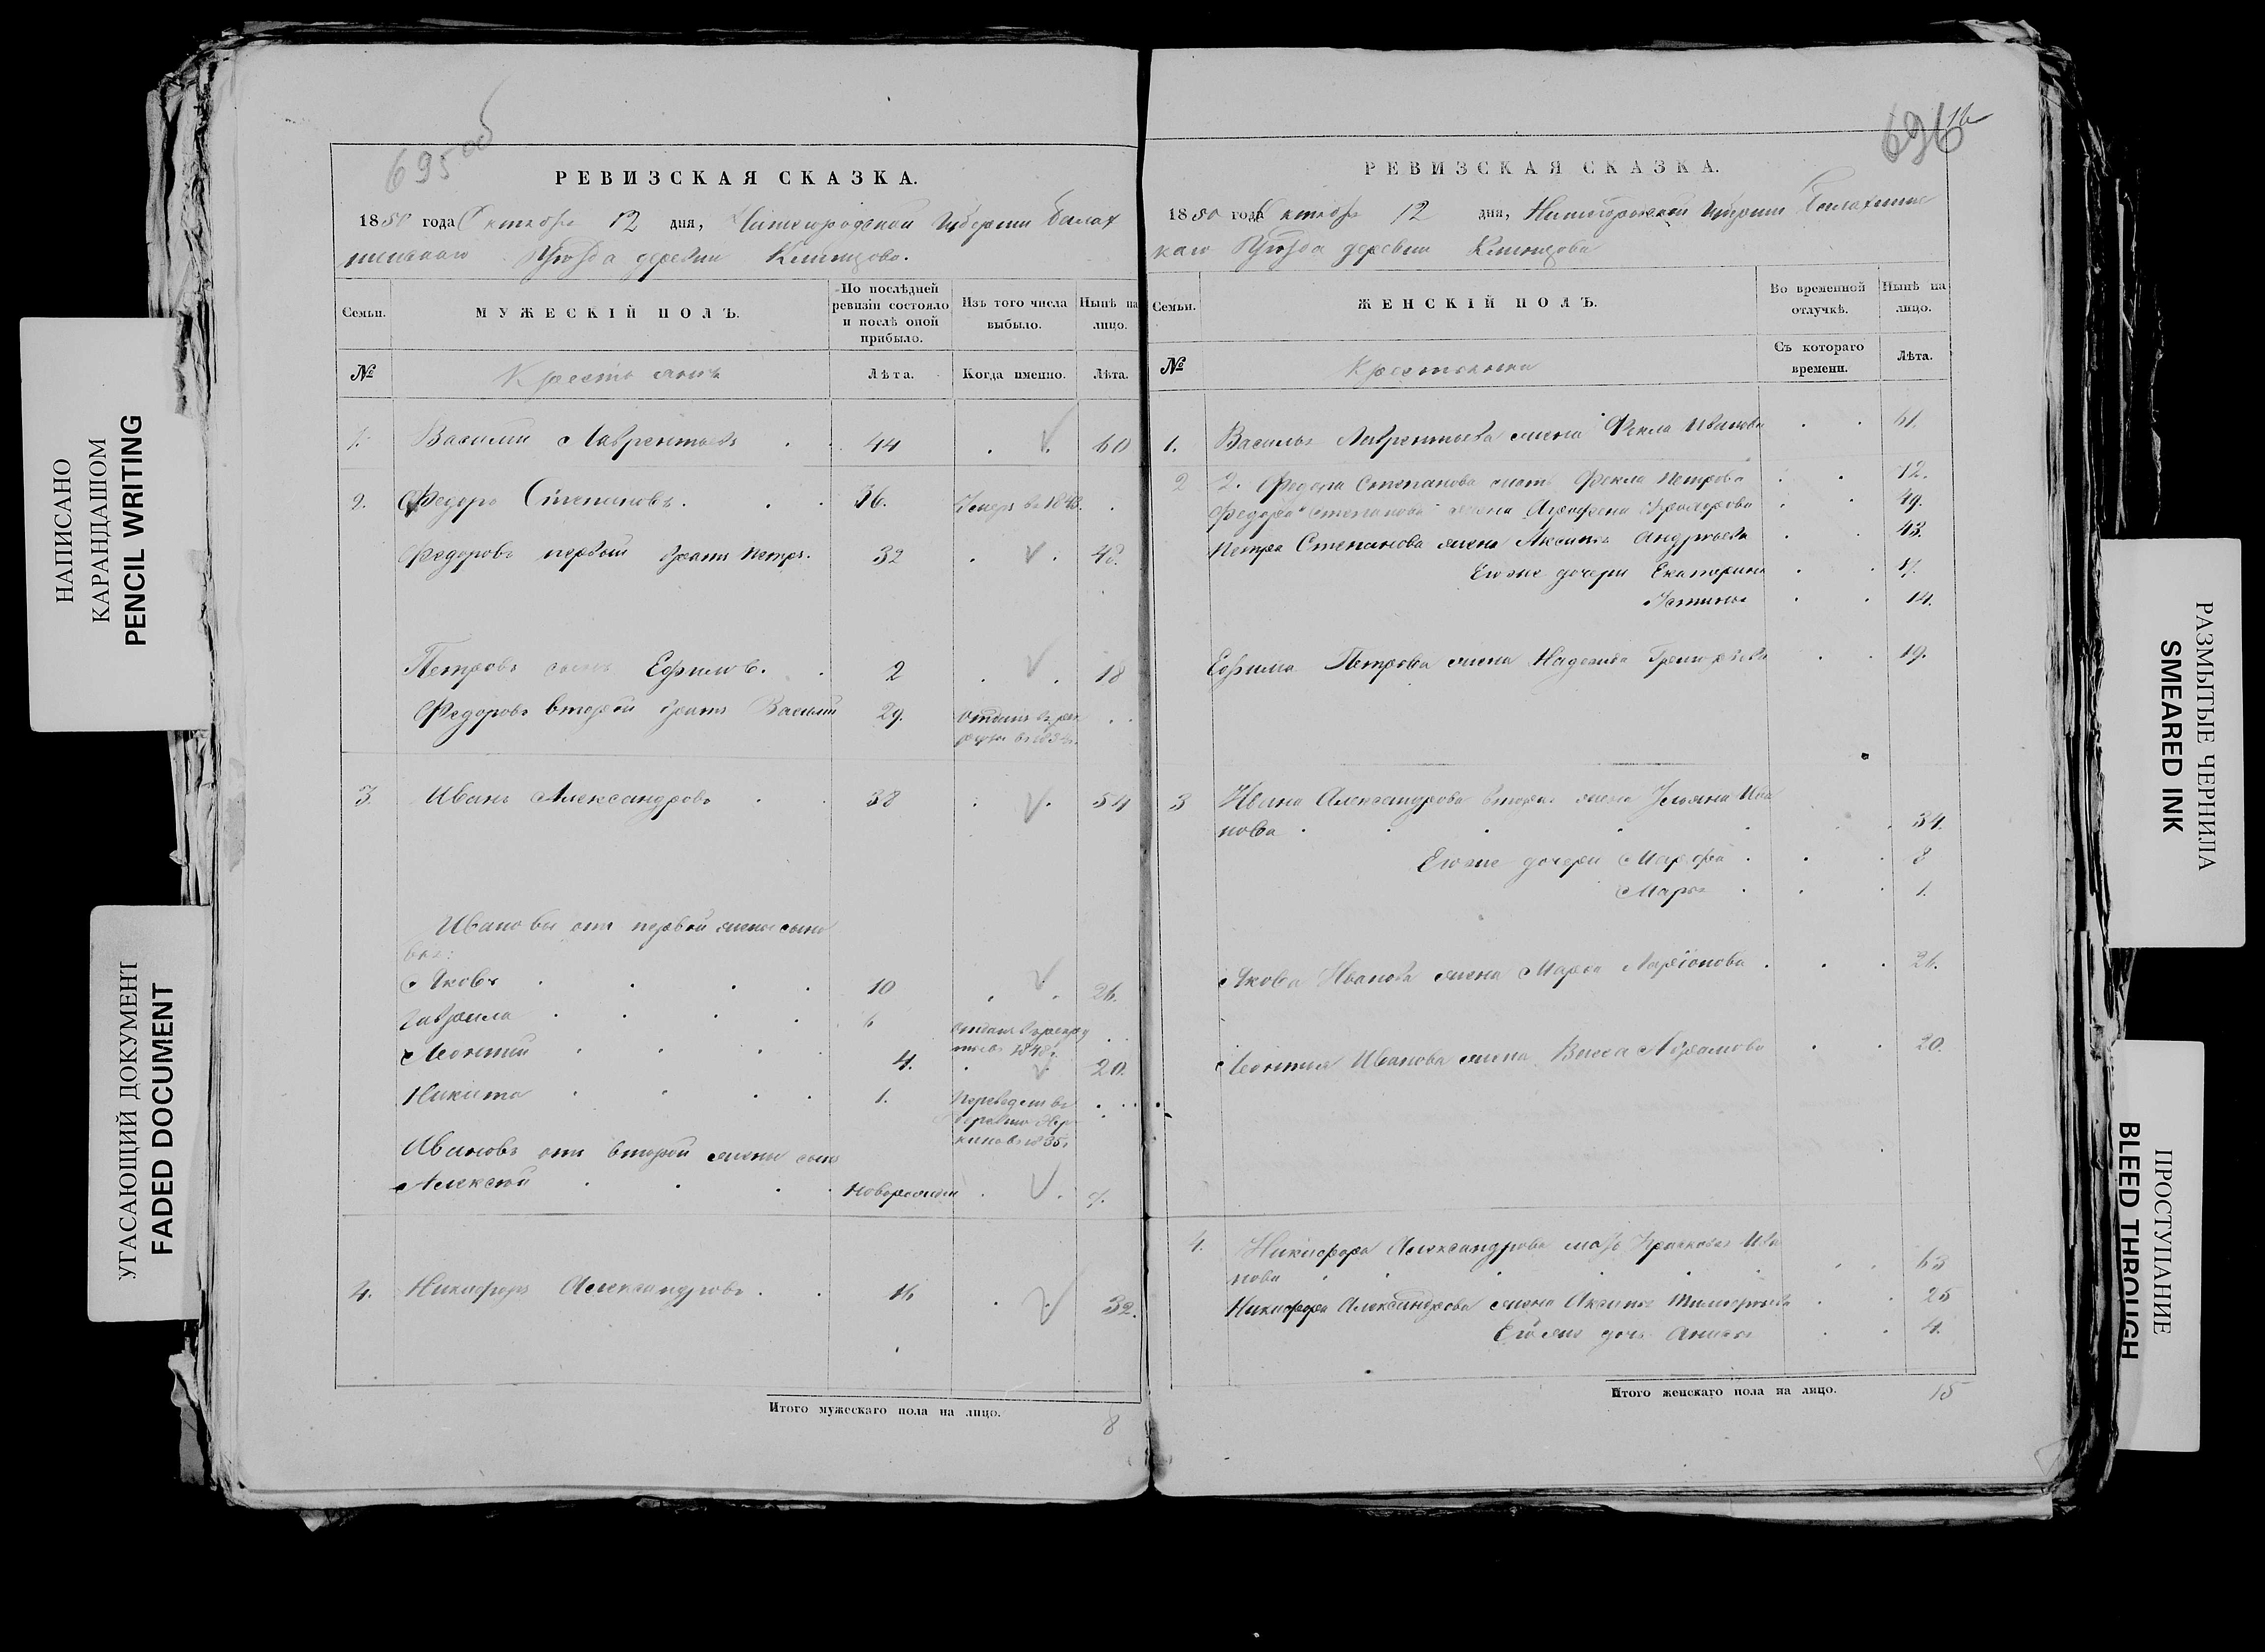 НАПИСАНО
КАРАНДАШОМ
PENCIL WRITING
УГАСАЮЩИЙ ДОКУМЕНТ
FADED DOCUMENT
695 об
РЕВИЗСКАЯ СКАЗКА.
1850 года Октября 12 дня, Нижегородской Губернии Балах
нинскаго Уѣзда деревни
Семьи.
МУЖЕСКІЙ ПОЛЪ.
По послѣдней ревизіи состояло и послѣ оной прибыло.
Изъ того числа выбыло.
Нынѣ на лицо.
№
Крестьяне
Лѣта.
Когда именно.
Лѣта.
1. Василий Лаврентьевъ 44 60
2. Федоръ Степановъ. 36. Умеръ въ 1843.
Федоровъ первый братъ Петръ. 32 48.
Петровъ сынъ Ефимъ. 2 18
Федоровъ второй братъ Василий 29. отданъ въ рек
руты въ
3. Иванъ Александровъ 38 54
Ивановы отъ первой жены сыно
вья:
Яковъ 10 26.
Гаврила 6 отданъ въ рекру
ты въ 1848 г.
Леонтий 4. 20.
Никита 1. Переведенъ въ
деревню
Ивановъ отъ второй жены сынъ
Алексей новорожден
4. Никифоръ Александровъ 16 32.
Итого мужескаго пола на лицо. 8
696
РЕВИЗСКАЯ СКАЗКА.
1850 года Октября 12 дня, Нижегородской Губернии Балахнинс
каго Уѣзда деревни
Семьи.
ЖЕНСКІЙ ПОЛЪ.
Во временной отлучкѣ.
Нынѣ на лицо.
№
Крестьянки
Съ котораго времени.
Лѣта.
1. Василья Лаврентьева жена Фекла Иванова 61.
2 2. Федора Степанова мать Фекла Петрова 72.
Федора Степанова жена Аграфена 49.
Петра Степанова жена Аксинья Андреева 43.
Его же дочери Екатерина 17.
Устинья 14.
Ефима Петрова жена Надежда Григорьева 19.
3 Ивана Александрова вторая жена Ульяна Ива
нова 34.
Его же дочери Марфа 8
Марья 1.
Якова Иванова жена Марья Ларіонова 26.
Леонтия Иванова жена Васса Абрамова 20.
4. Никифора Александрова мать Ива
нова 63
Никифора Александрова жена Аксинья 25
Его же дочь Анисья 4.
Итого женскаго пола на лицо. 15
РАЗМЫТЫЕ ЧЕРНИЛА
SMEARED INK
ПРОСТУПАНИЕ
BLEED THROUGH